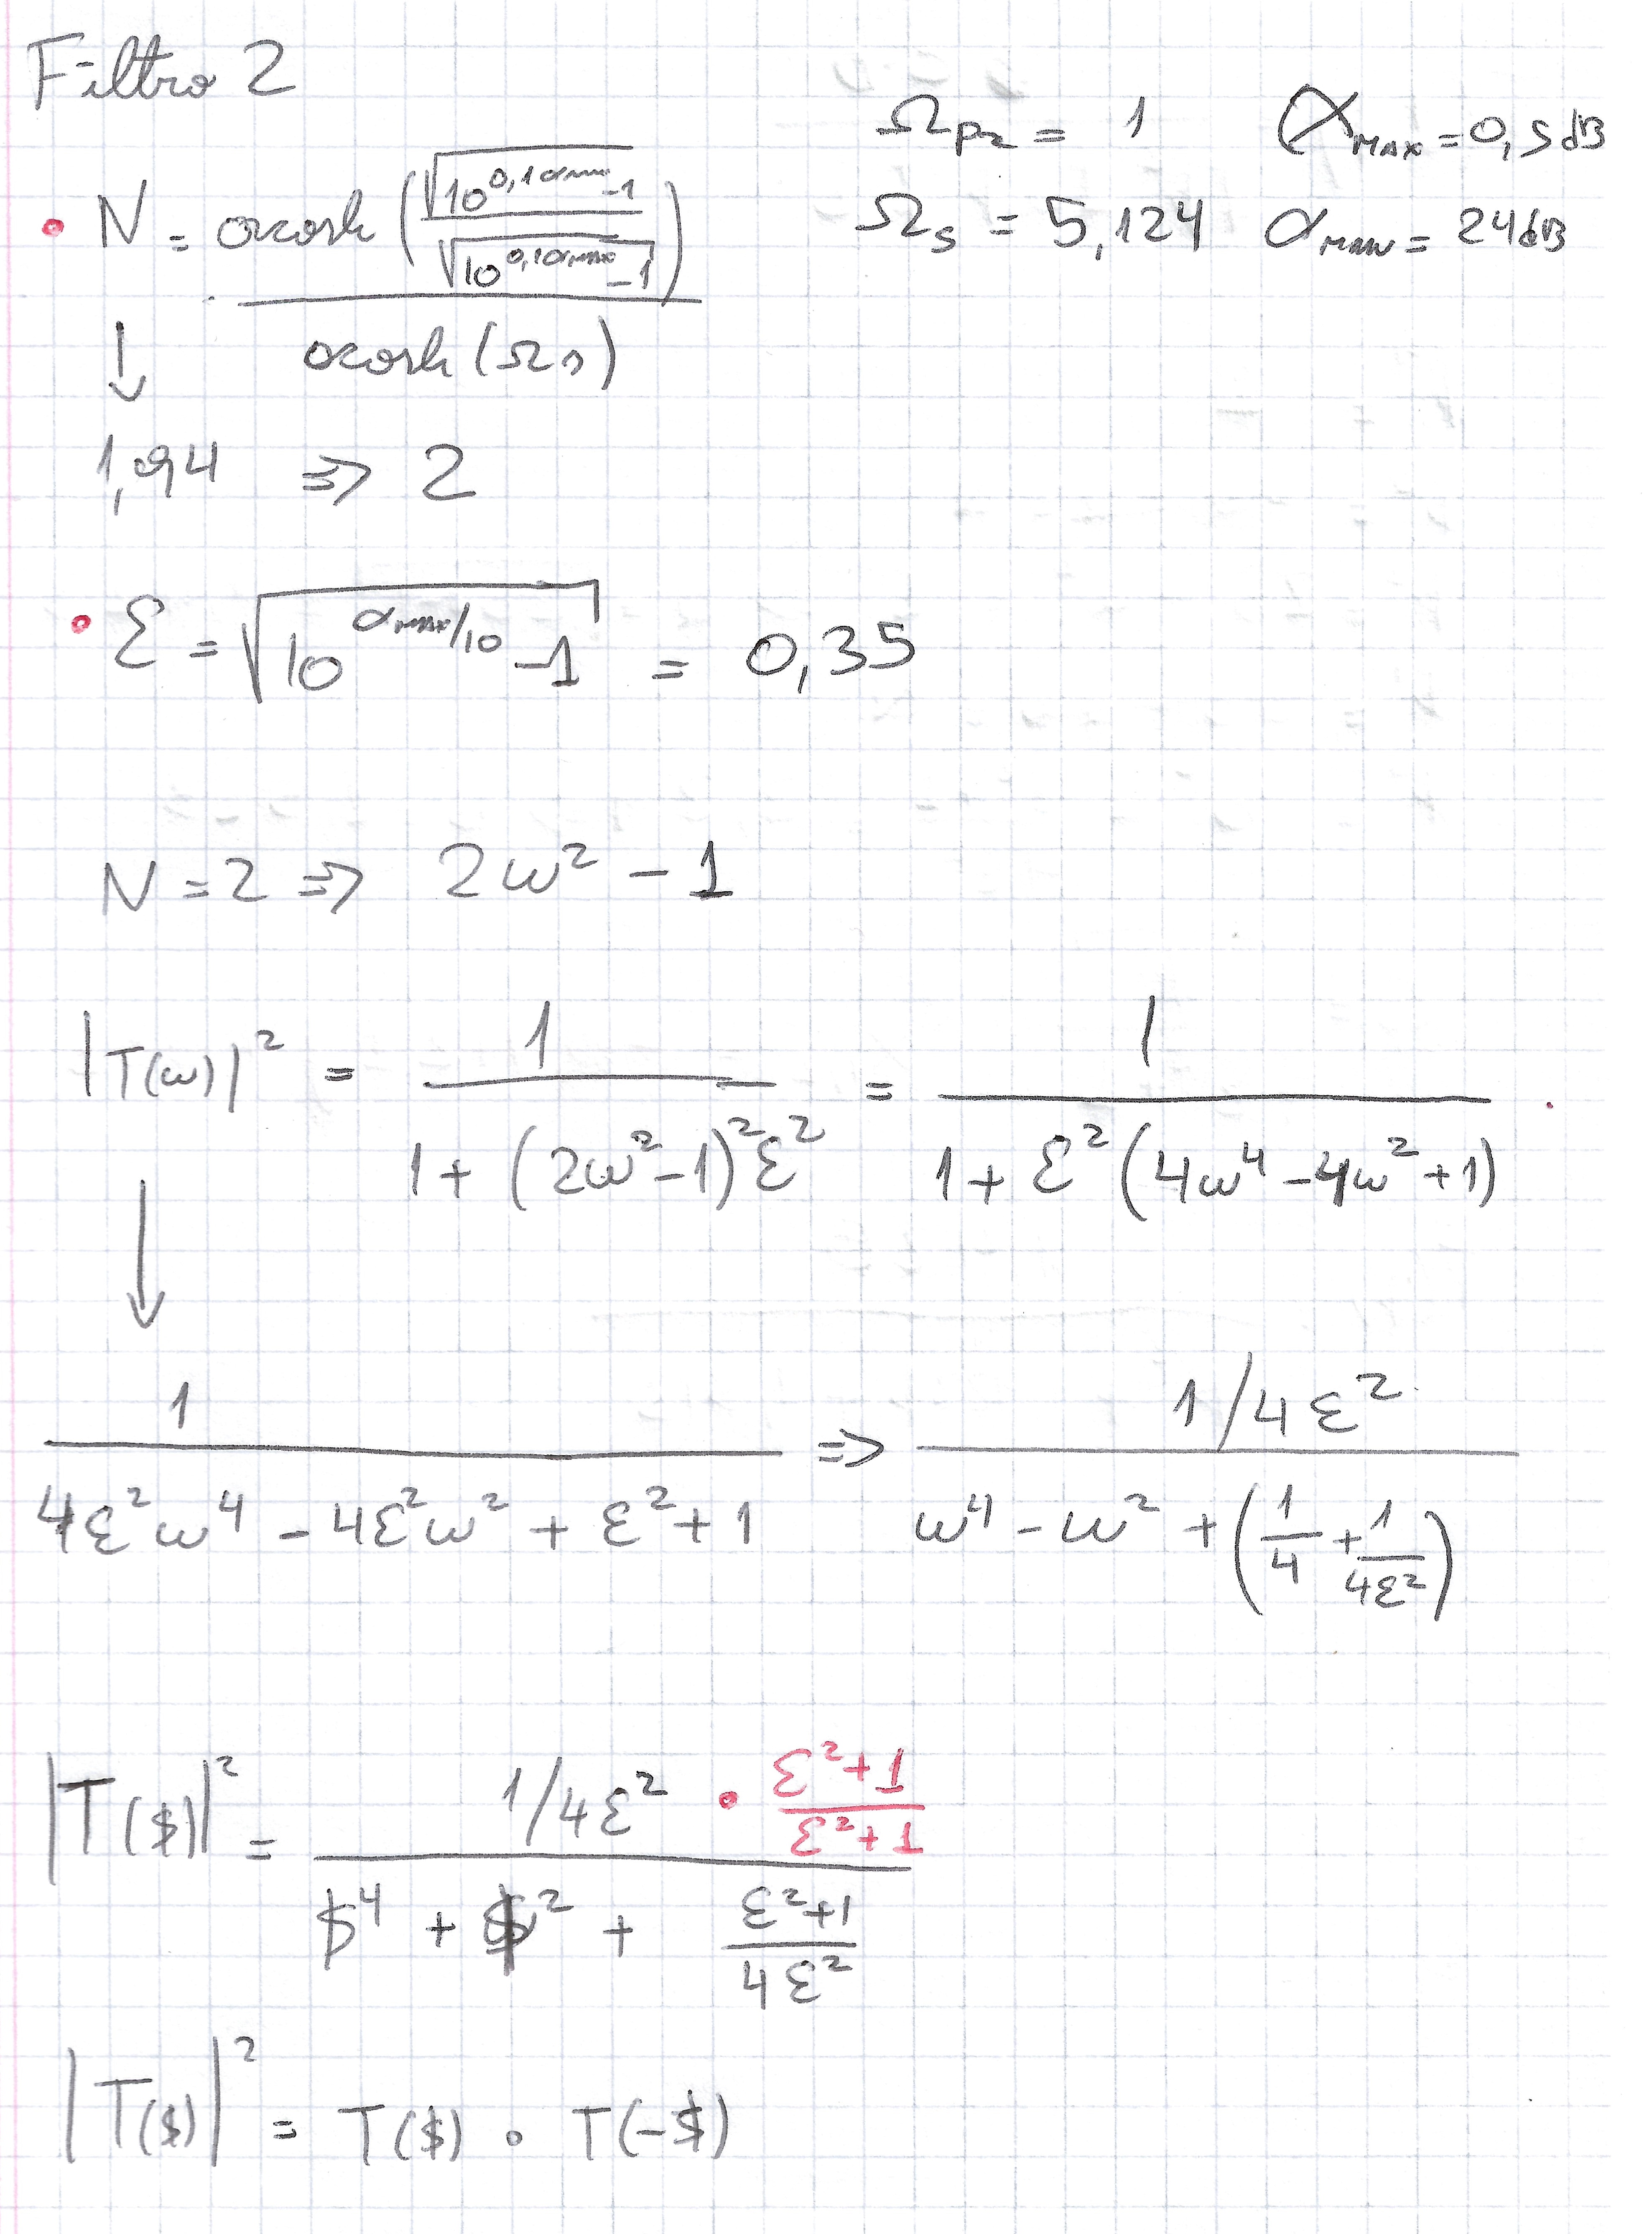 Filtro 2
Ωp2 = 1 αMAX = 0,5 dB
Ωs = 5,124 αmin = 24 dB
• N = acosh (√(10^(0,1αmin) -1) / √(10^(0,1αmax) -1)) / acosh (Ωs)
↓
1,94 ⇒ 2
• ε = √(10^(αmax/10) -1) = 0,35
N = 2 ⇒ 2ω² - 1
|T(ω)|² = 1 / (1 + (2ω²-1)² ε²) = 1 / (1 + ε² (4ω⁴ - 4ω² + 1))
↓
1 / (4ε²ω⁴ - 4ε²ω² + ε² + 1) ⇒ (1/4ε²) / (ω⁴ - ω² + (1/4 + 1/4ε²))
|T($)|² = (1/4ε² • (ε²+1)/(ε²+1)) / ($⁴ + $² + (ε²+1)/4ε²)
|T($)|² = T($) • T(-$)